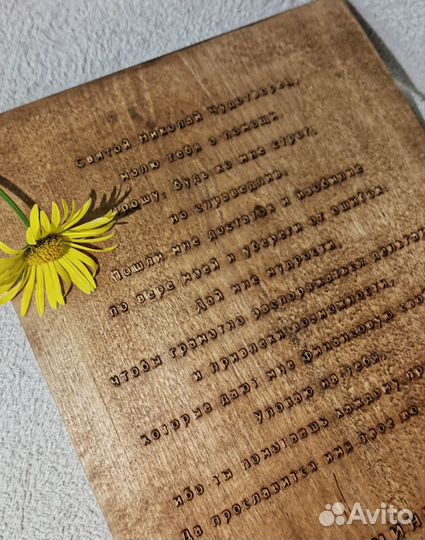 Святой Николай Чудотворец,
молю тебя о помощи
прошу, будь ко мне строг,
но справедлив.
Пошли мне достаток и изобилие
по вере моей и убереги от ошибок.
Дай мне мудрости,
чтобы грамотно распоряжаться
и привлекать возможности,
которые дают мне финансовую
уповаю на тебя,
ибо ты помогаешь каждому
Да прославится имя твое во
Avito